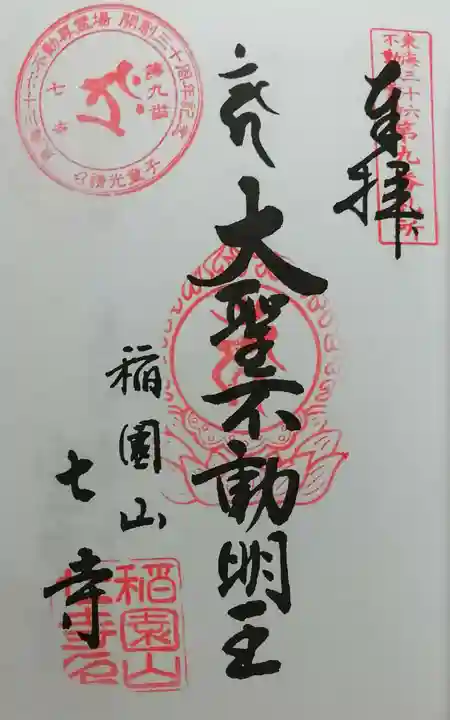 東海三十六
不動尊第九番札所
奉拝
大聖不動明王
東海三十六不動尊霊場 開創三十周年記念
第九番
七寺
稲園山
七寺
稲園山
七寺